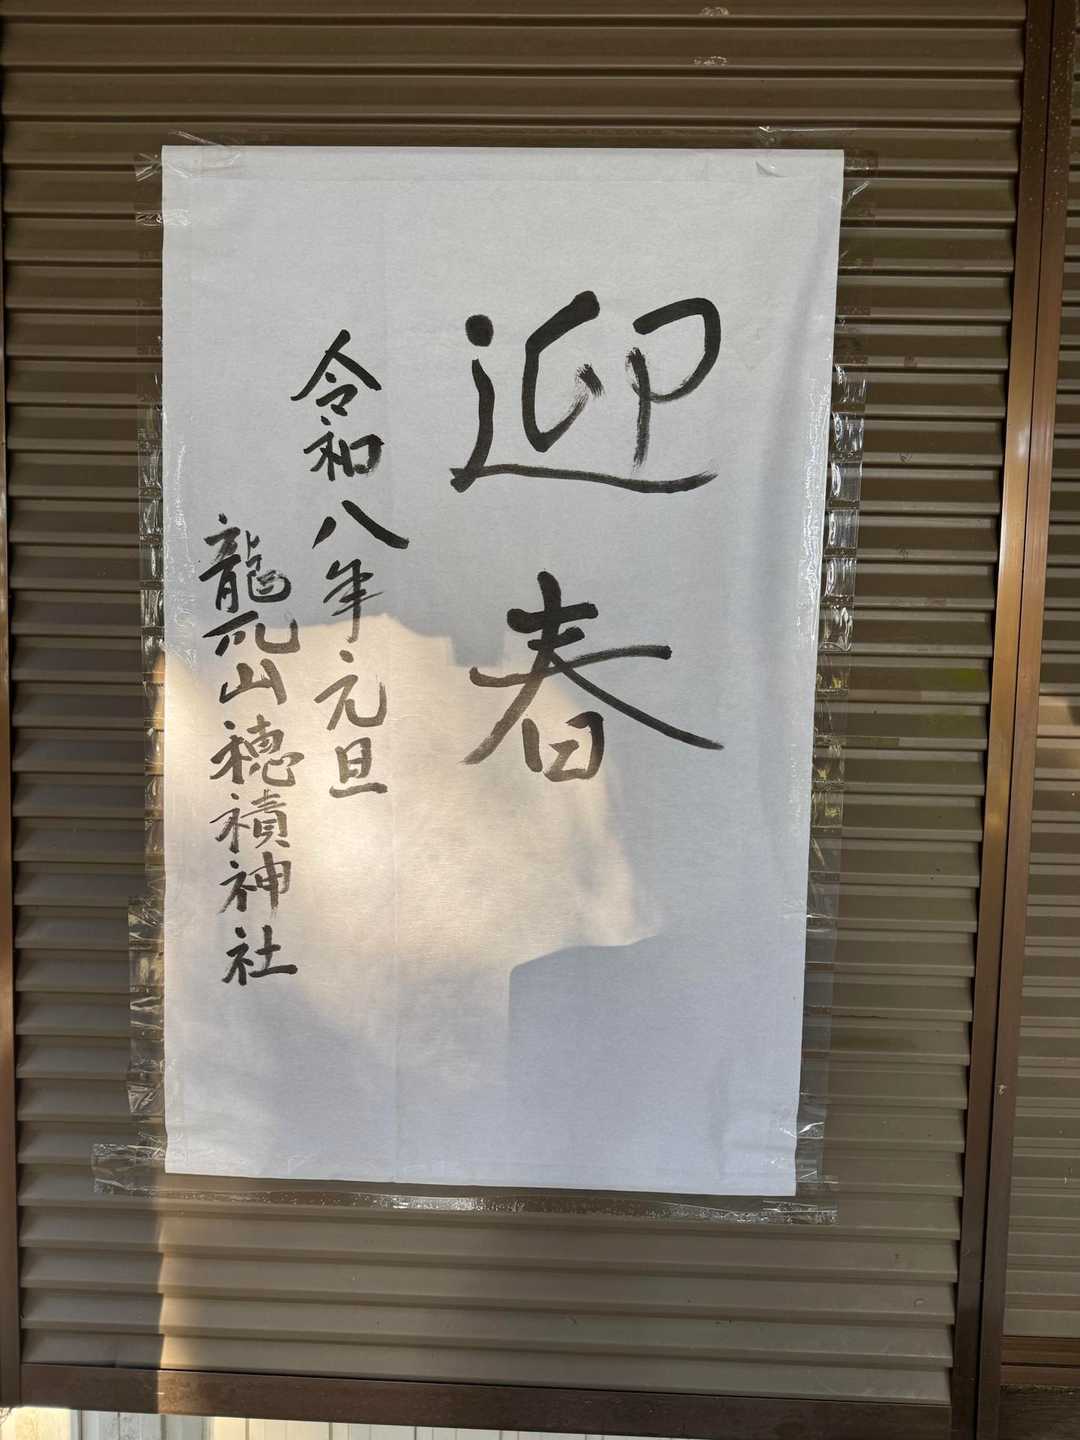 迎春
令和八年元旦
龍爪山穂積神社